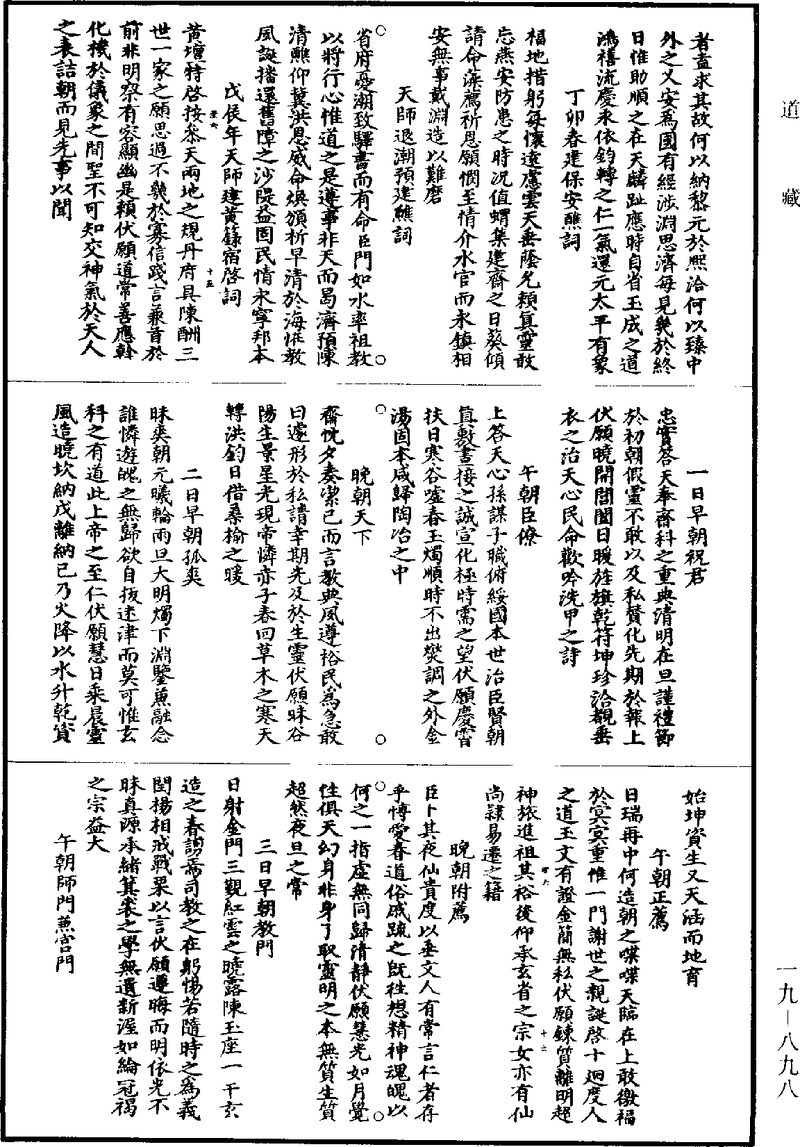 道藏
者盍求其故何以納黎元於熙洽何以臻中
外之乂安爲國有經滋淵思濟每見幾於終
日惟助順之在天麟趾應時自省玉成之道
鴻禧流慶永依鈞轉之仁一氣還元太平有象
丁卯春建保安醮詞
福地措躬每懷遠慮雲天垂蔭允賴眞靈敢
忘燕安防患之時况值蝟集建齋之日葵傾
請命藻薦祈恩願憫至情介水官而永鎮相
安無事戴淵造以難磨
天師退潮預建醮詞
省府憂潮致驛書而有命臣門如水率祖教
以將行心惟道之是遵事非天而曷濟預陳
清醮仰冀洪恩威命煥頒祈早清於海〻教
風誕播還舊障之沙隄益固民情永寧邦本
戊侯年天師建黃籙宿啓詞
黃壇特啓按叅天兩地之規丹府具陳酬三
世一家之願思過不幾於寡信踐言兼首於
前非明察有容顯幽是賴伏願道常善應斡
化機於儀象之間聖不可知交神氣於天人
之表詰朝而見先事以聞
一日早朝祝君
忠實答天奉齋科之重典清明在旦謹禮節
於初朝假靈不敢以及私贊化先期於報上
伏願曉開閶闔日暖旌旗乾符坤珍洽覩垂
衣之治天心民命歡吟洗甲之詩
午朝臣僚
上答天心孫謀子職俯綏國本世治臣賢朝
眞數晝接之誠宣化極時需之望伏願慶霄
扶日寒谷嘘春玉燭順時不出爕調之外金
湯固本咸歸陶冶之中
晚朝天下
齋忱夕奏潔已而言教典風遵裕民爲急敢
曰遽形於私請幸期先及於生靈伏願昧谷
陽生景星光現帝憐赤子春回草木之寒天
轉洪鈞日借桑榆之暖
二日早朝孤爽
昧爽朝元曦輪兩旦大明燭下淵鑒䔥融念
誰憐遊魄之無歸欲自拔迷津而莫可惟玄
科之有道此上帝之至仁伏願慧日乘晨靈
風造曉坎納戊離納已乃火降以水升乾資
始坤資生又天涵而地育
午朝正薦
日瑞再中何造朝之喋喋天臨在上敢徼福
於冥冥重惟一門謝世之親誕啓十迴度人
之道玉文有證金簡無私伏願鍊質離明超
神旅進祖其裕後仰承玄省之宗女亦有仙
尚隷易遷之籍
晚朝附薦
臣卜其夜仙貴度以垂文人有常言仁者存
乎愽愛春道俗戚疏之旣往想精神魂魄以
何之一指虛無同歸清靜伏願慧光如月覺
性俱天幻身非身了取靈明之本無質生質
超然夜旦之常
三日早朝教門
日射金門三覲紅雲之曉露陳玉座一干玄
造之春謁焉司教之在躬惕若隨時之爲義
閔揚相戒戰栗以言伏願遵晦而明依光不
昧真源承緒箕裘之學無遺新渥如綸冠褐
之宗益大
午朝師門蒹宮門
一九—八九八